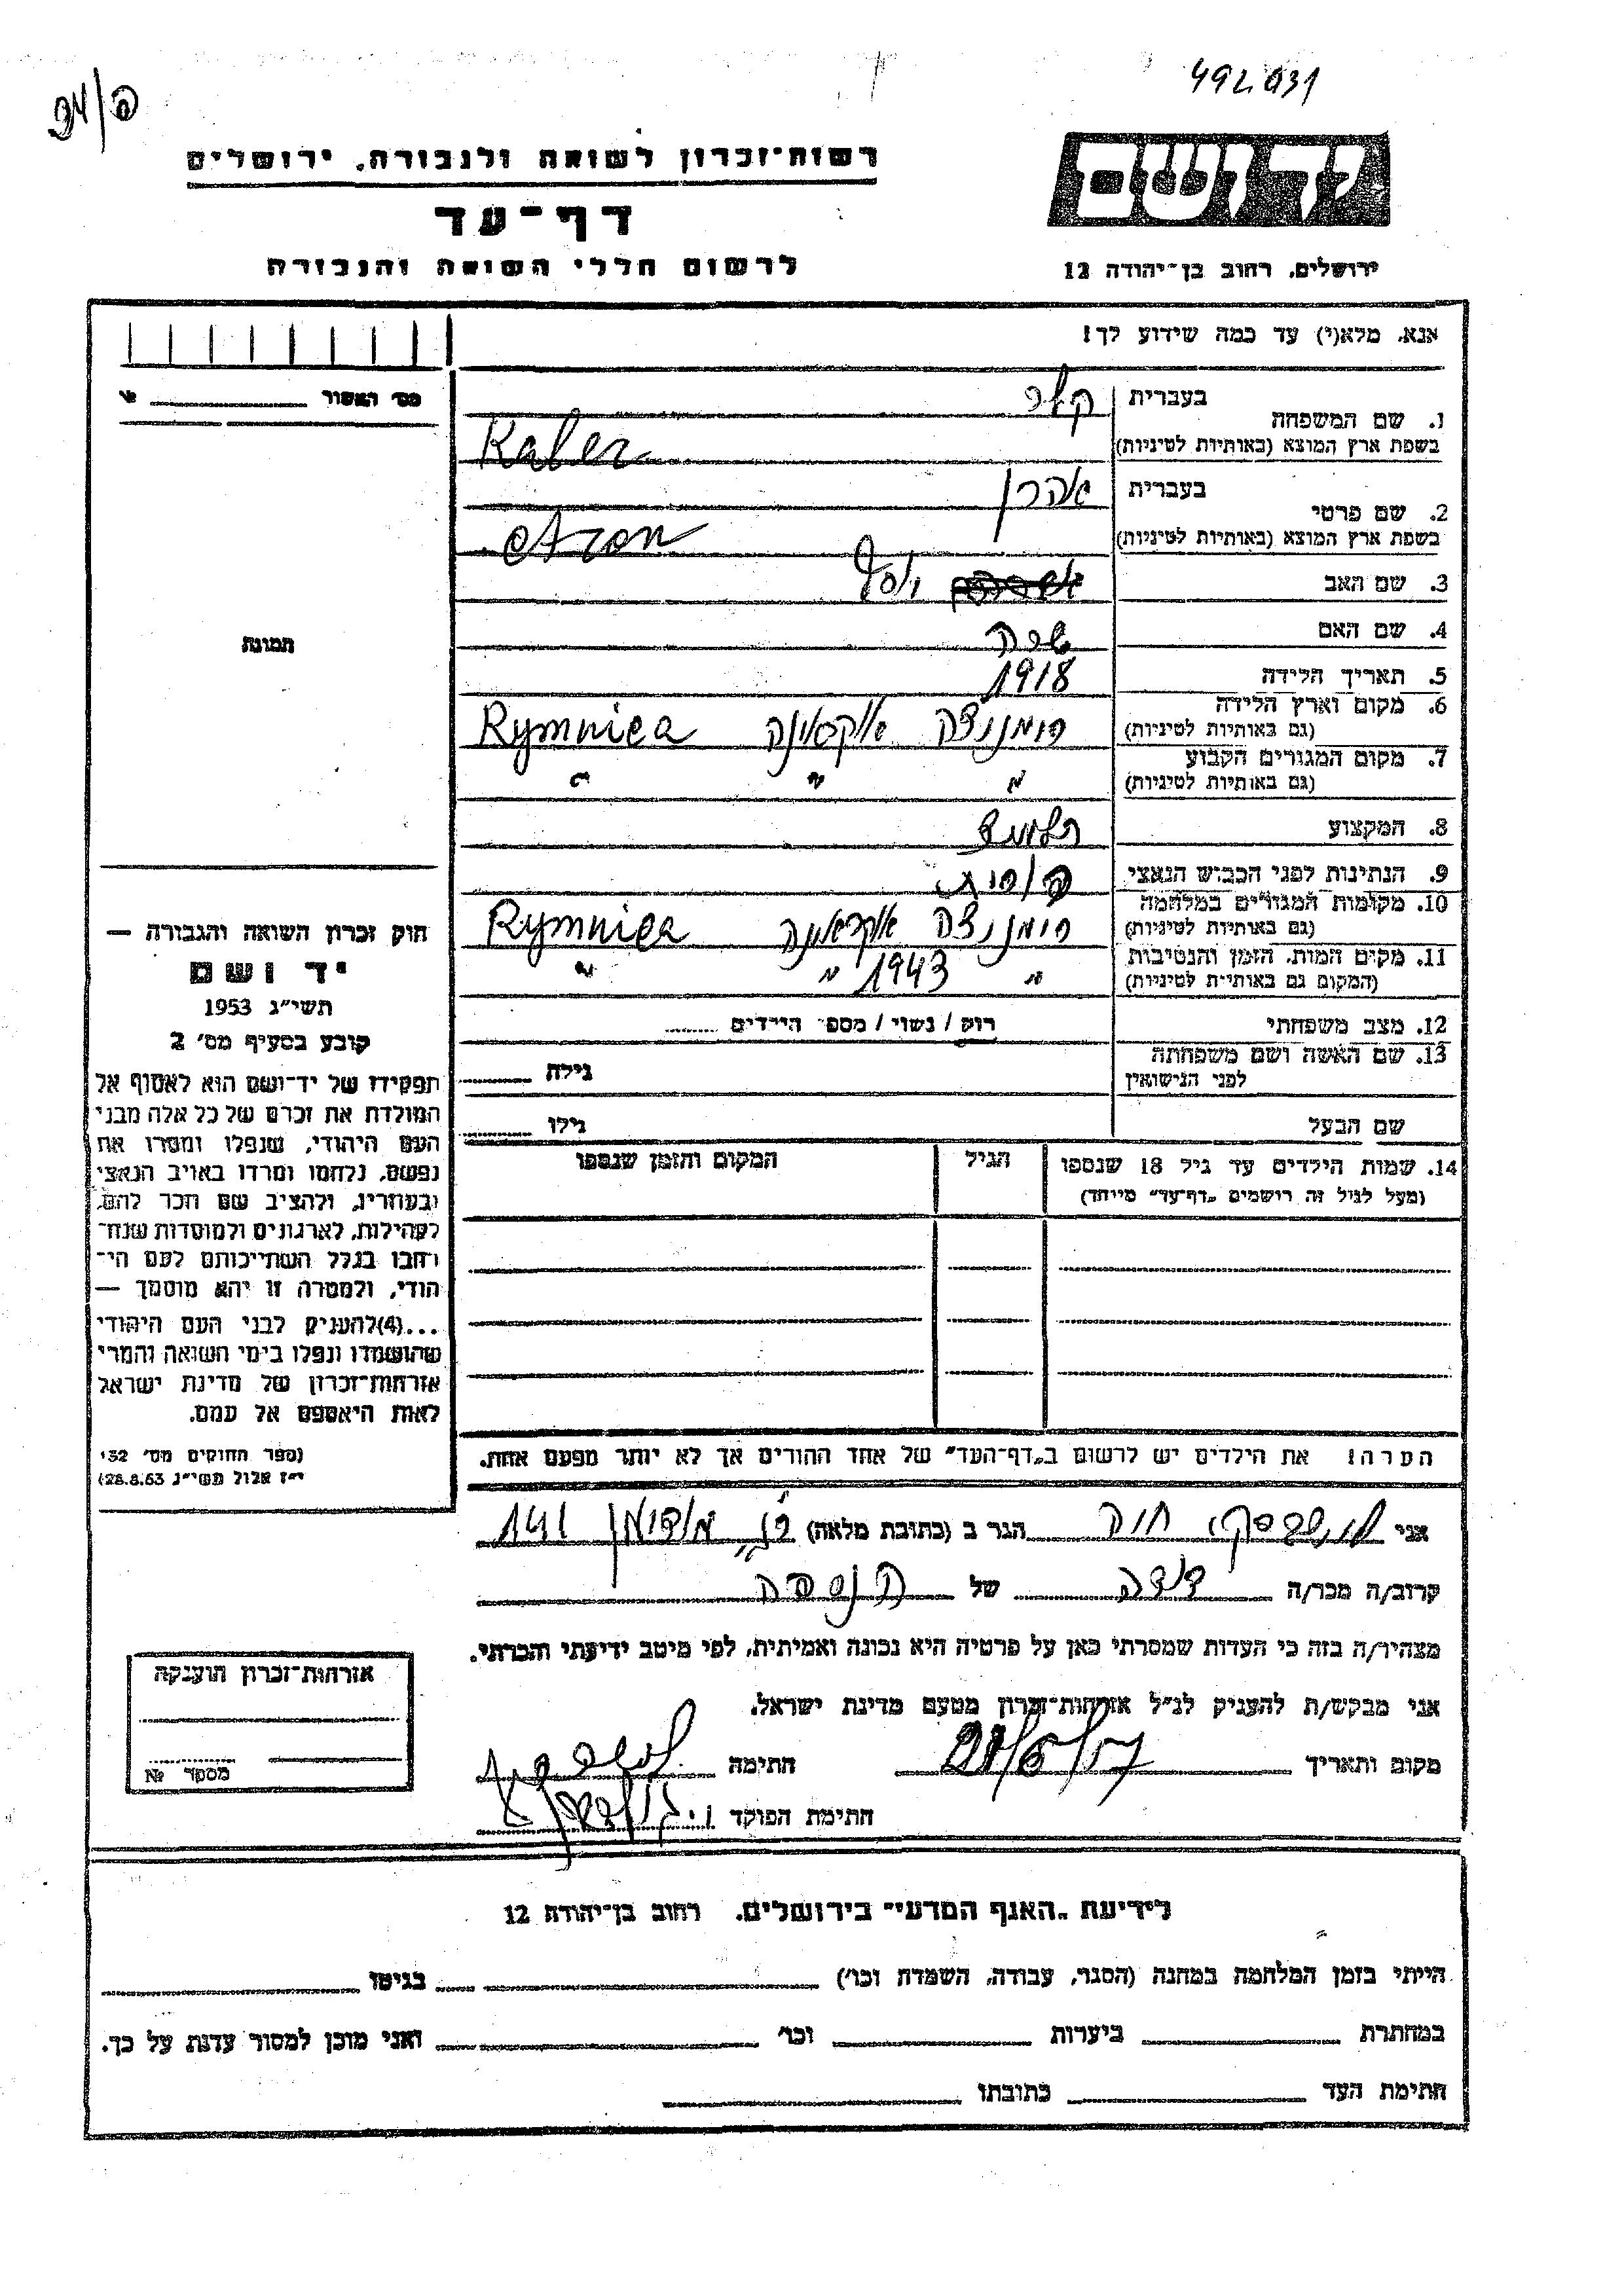 492031
94/פ
יד ושם
ירושלים, רחוב בן־יהודה 12
רשות־זכרון לשואה ולגבורה, ירושלים
דף־עד
לרשום חללי השואה והגבורה
אנא, מלא(י) עד כמה שידוע לך!
מס׳ האשור № ________
1. שם המשפחה בעברית קלר
בשפת ארץ המוצא (באותיות לטיניות) Kaler
2. שם פרטי בעברית אהרן
בשפת ארץ המוצא (באותיות לטיניות) Aron
3. שם האב יוסף
4. שם האם שרה
5. תאריך הלידה 1918
6. מקום וארץ הלידה (גם באותיות לטיניות) רומנוצה אוקראינה Rymniea
7. מקום המגורים הקבוע (גם באותיות לטיניות) " " "
8. המקצוע
9. הנתינות לפני הכבוש הנאצי
10. מקומות המגורים במלחמה (גם באותיות לטיניות) רומנוצה אוקראינה Rymniea
11. מקום המות, הזמן והנסיבות (המקום גם באותיות לטיניות) " 1943 " "
12. מצב משפחתי רווק / נשוי / מספר הילדים ........
13. שם האשה ושם משפחתה לפני הנישואין גילה ........
שם הבעל גילו ........
14. שמות הילדים עד גיל 18 שנספו (מעל לגיל זה רושמים „דף־עד" מיוחד) הגיל המקום והזמן שנספו
תמונה
חוק זכרון השואה והגבורה —
יד ושם
תשי״ג 1953
קובע בסעיף מס׳ 2
תפקידו של יד־ושם הוא לאסוף אל
המולדת את זכרם של כל אלה מבני
העם היהודי, שנפלו ומסרו את
נפשם, נלחמו ומרדו באויב הנאצי
ובעוזריו, ולהציב שם וזכר להם,
לקהילות, לארגונים ולמוסדות שנח־
רחבו בגלל השתייכותם לעם הי־
הודי, ולמטרה זו יהא מוסמך —
...(4) להעניק לבני העם היהודי
שהושמדו ונפלו בימי השואה והמרי
אזרחות־זכרון של מדינת ישראל
לאות היאספם אל עמם.
(ספר החוקים מס׳ 132
י״ז אלול תשי״ג 28.8.53)
הערה! את הילדים יש לרשום ב„דף־העד" של אחד ההורים אך לא יותר מפעם אחת.
אני חוה הגר ב (כתובת מלאה) 141
קרוב/ה מכר/ה דודה של הנספה
מצהיר/ה בזה כי העדות שמסרתי כאן על פרטיה היא נכונה ואמיתית, לפי מיטב ידיעתי והכרתי.
אני מבקש/ת להעניק לנ״ל אזרחות־זכרון מטעם מדינת ישראל.
מקום ותאריך 21/5/57 חתימה
חתימת הפוקד
אזרחות־זכרון הוענקה
מספר №
לידיעת „האגף המדעי" בירושלים, רחוב בן־יהודה 12
הייתי בזמן המלחמה במחנה (הסגר, עבודה, השמדה וכו׳) ________ בגיטו ________
במחתרת ________ ביערות ________ וכו׳ ________ ואני מוכן למסור עדות על כך.
חתימת העד ________ כתובתו ________